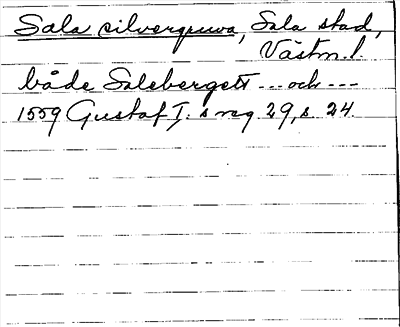 Sala silvergruva, Sala stad,
Västm.l.
både Salebergett --- och ---
1559 Gustaf I:s reg 29, s 24.